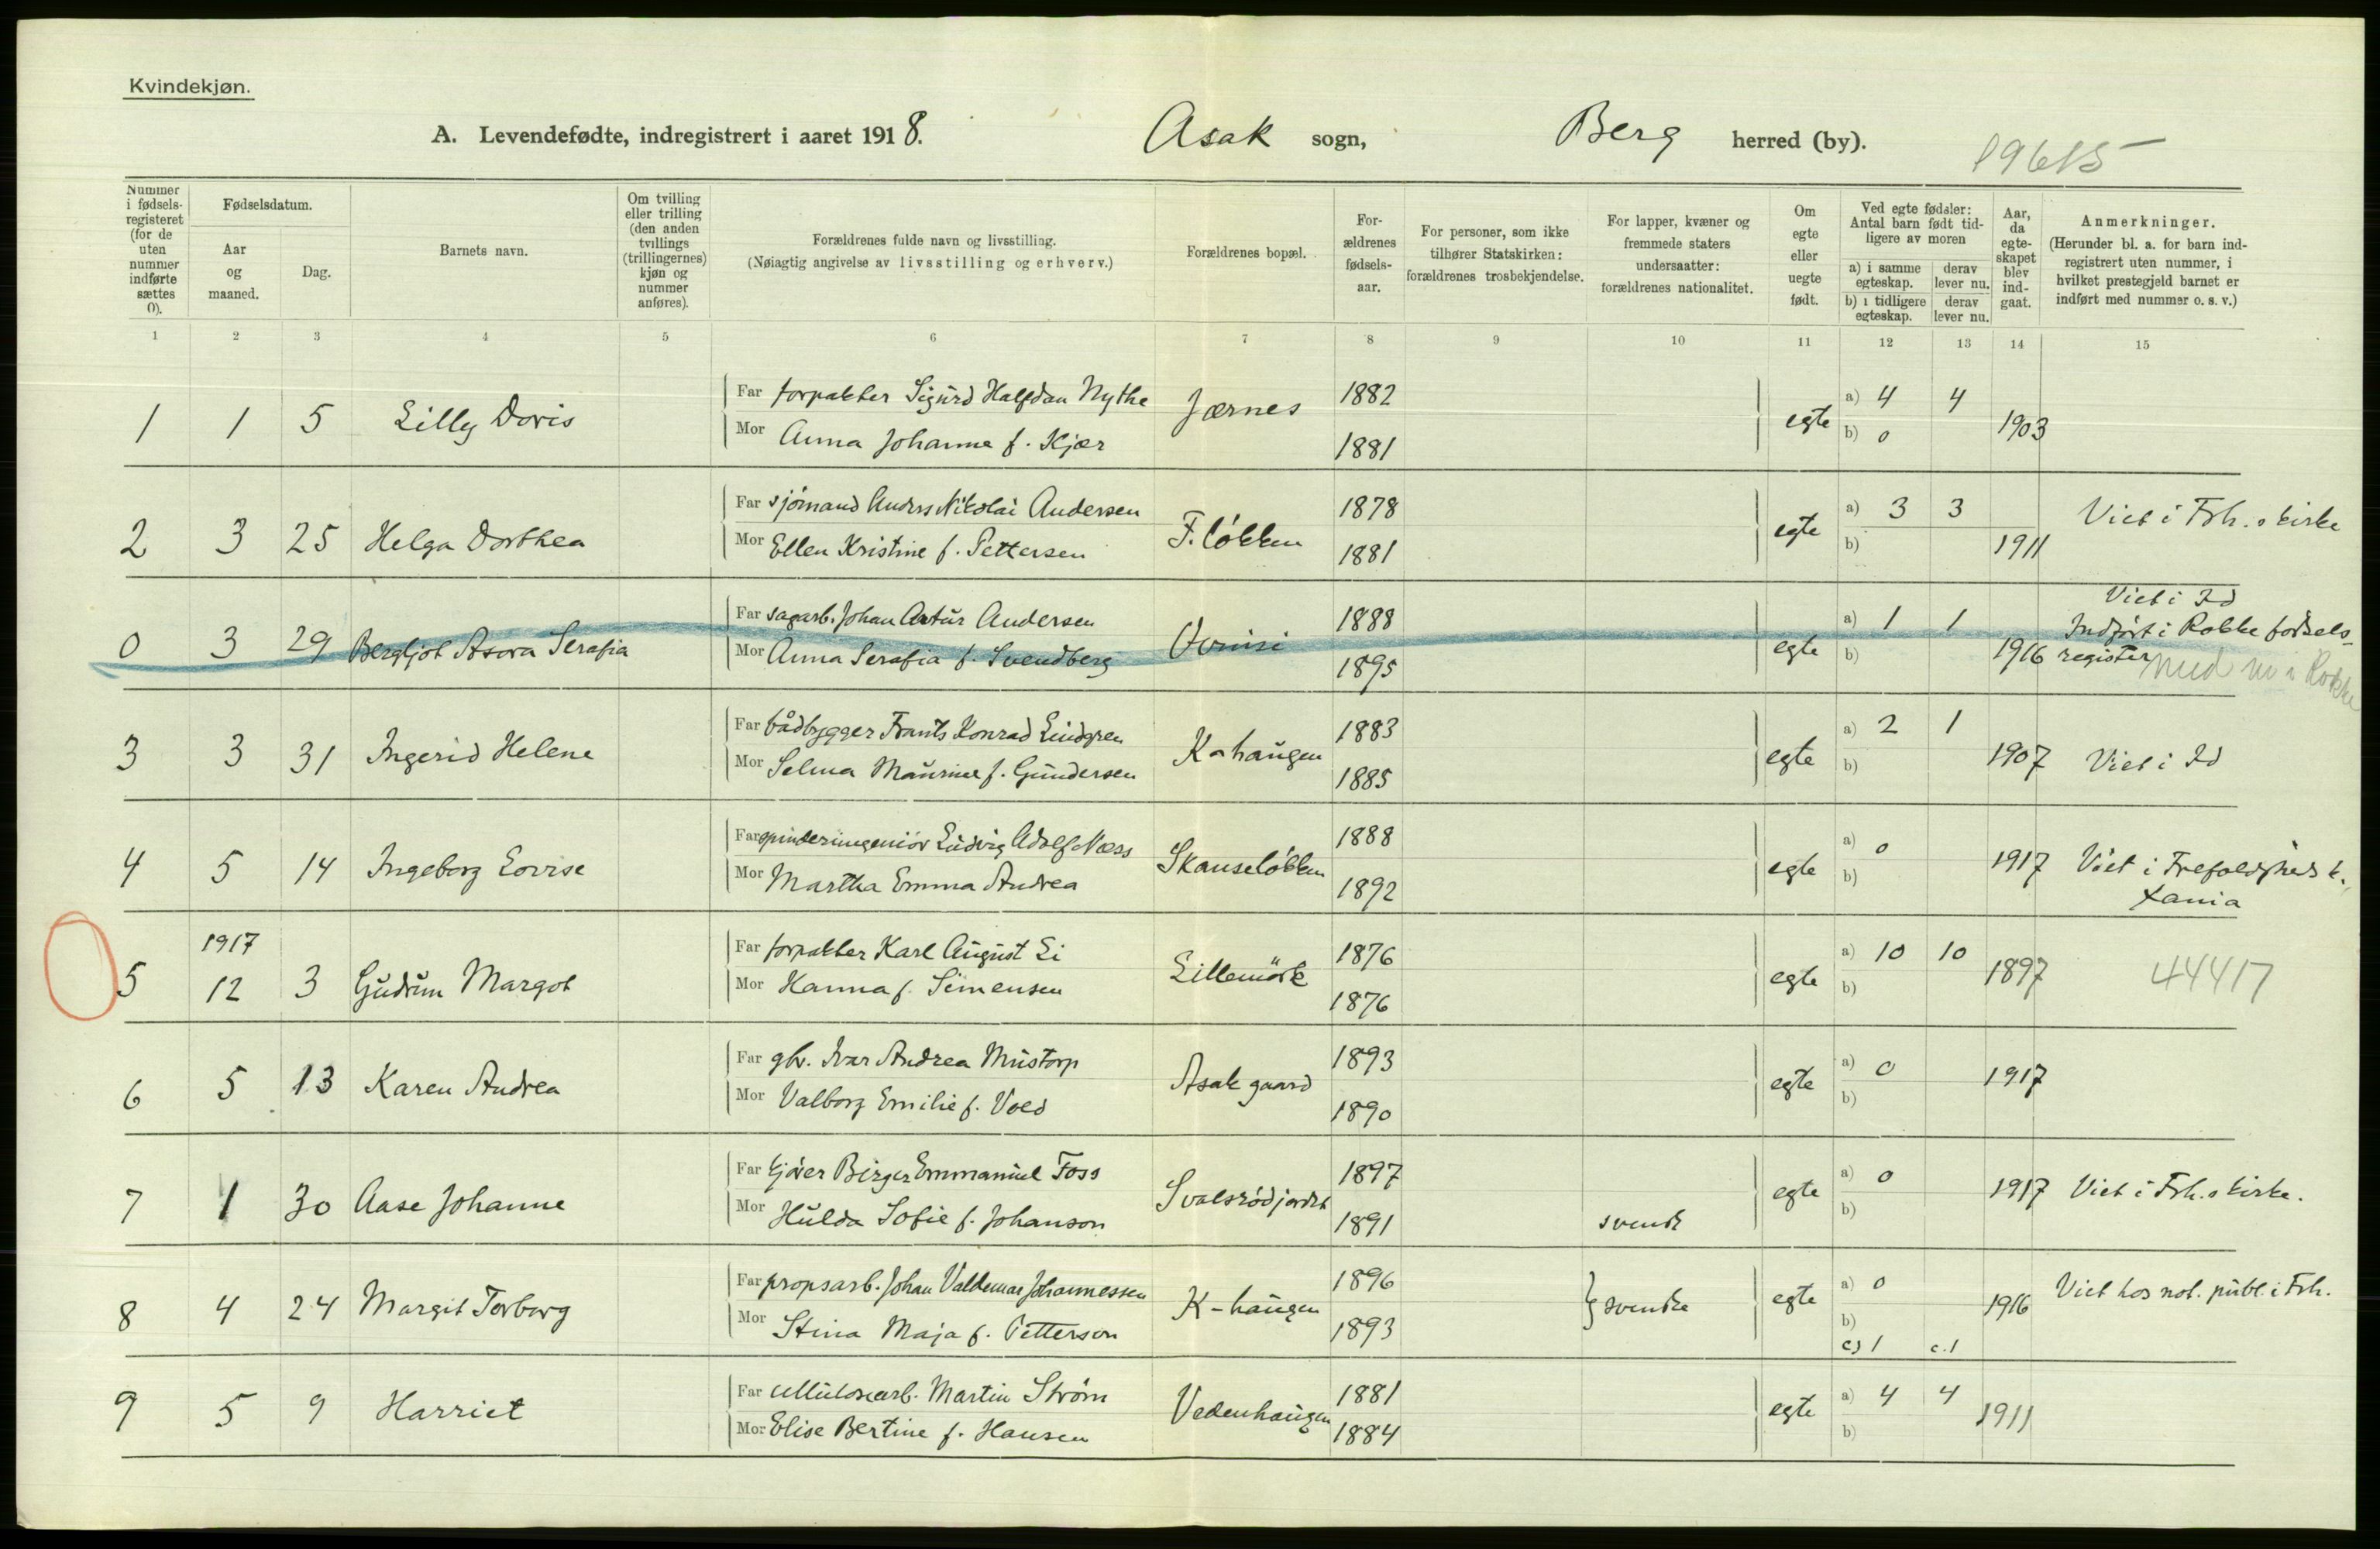 Kvindekjøn.
A. Levendefødte, indregistrert i aaret 1918. Asak sogn, Berg herred (by).
19615
Nummer i fødsels-registeret (for de uten nummer indførte sættes 0).
Fødselsdatum.
Aar og maaned.
Dag.
Barnets navn.
Om tvilling eller trilling (den anden tvillings (trillingernes) kjøn og nummer anføres).
Forældrenes fulde navn og livsstilling.
(Nøiagtig angivelse av livsstilling og erhverv.)
Forældrenes bopæl.
For-ældrenes fødsels-aar.
For personer, som ikke tilhører Statskirken: forældrenes trosbekjendelse.
For lapper, kvæner og fremmede staters undersaatter: forældrenes nationalitet.
Om egte eller uegte født.
Ved egte fødsler: Antal barn født tid-ligere av moren
a) i samme egteskap. derav lever nu.
b) i tidligere egteskap. derav lever nu.
Aar, da egte-skapet blev ind-gaat.
Anmerkninger.
(Herunder bl. a. for barn ind-registrert uten nummer, i hvilket prestegjeld barnet er indført med nummer o. s. v.)
1 2 3 4 5 6 7 8 9 10 11 12 13 14 15
1 1 5 Lilly Doris Far forpakter Sigurd Halfdan Nythe Jærnes 1882 egte a) 4 4 1903
Mor Anna Johanne f. Kjær 1881 b) 0
2 3 25 Helga Dorthea Far sjömand Anders Nikolai Andersen F. løkken 1878 egte a) 3 3 1911 Viet i Frh.s kirke
Mor Ellen Kristine f. Pettersen 1881 b)
0 3 29 Bergljot Asora Serafia Far sagarb. Johan Artur Andersen 1888 egte a) 1 1 1916 Viet i Id
Indført i Rokke fødsels-
register med nr i Rokke
Mor Anna Serafia f. Svendberg 1895 b)
3 3 31 Ingerid Helene Far båtbygger Frants Konrad Lindgren K-haugen 1883 egte a) 2 1 1907 Viet i Id
Mor Selma Maurine f. Gundersen 1885 b)
4 5 14 Ingeborg Lovise Far spinderiingeniör Ludvig Adolf Næss Skanseløkken 1888 egte a) 0 1917 Viet i Trefoldigheds k.
Xania
Mor Martha Emma Andrea 1892 b)
1917
5 12 3 Gudrun Margot Far forpakter Karl August Li Lillemörk 1876 egte a) 10 10 1897 44417
Mor Hanna f. Simensen 1876 b)
6 5 13 Karen Andrea Far gbr. Ivar Andrea Mustorp Asak gaard 1893 egte a) 0 1917
Mor Valborg Emilie f. Vold 1890 b)
7 1 30 Aase Johanne Far kjörer Birger Emmanuel Foss Svalerödjordet 1897 egte a) 0 1917 Viet i Frh.s kirke.
Mor Hulda Sofie f. Johanson 1891 svensk b)
8 4 24 Margit Torborg Far propsarb. Johan Valdemar Johannessen K-haugen 1896 svenske egte a) 0 1916 Viet hos not. publ. i Frh.
Mor Stina Maja f. Petterson 1893 b)
c) 1 c. 1
9 5 9 Harriet Far cellulosearb. Martin Ström Vedenhaugen 1881 egte a) 4 4 1911
Mor Elise Bertine f. Hansen 1884 b)